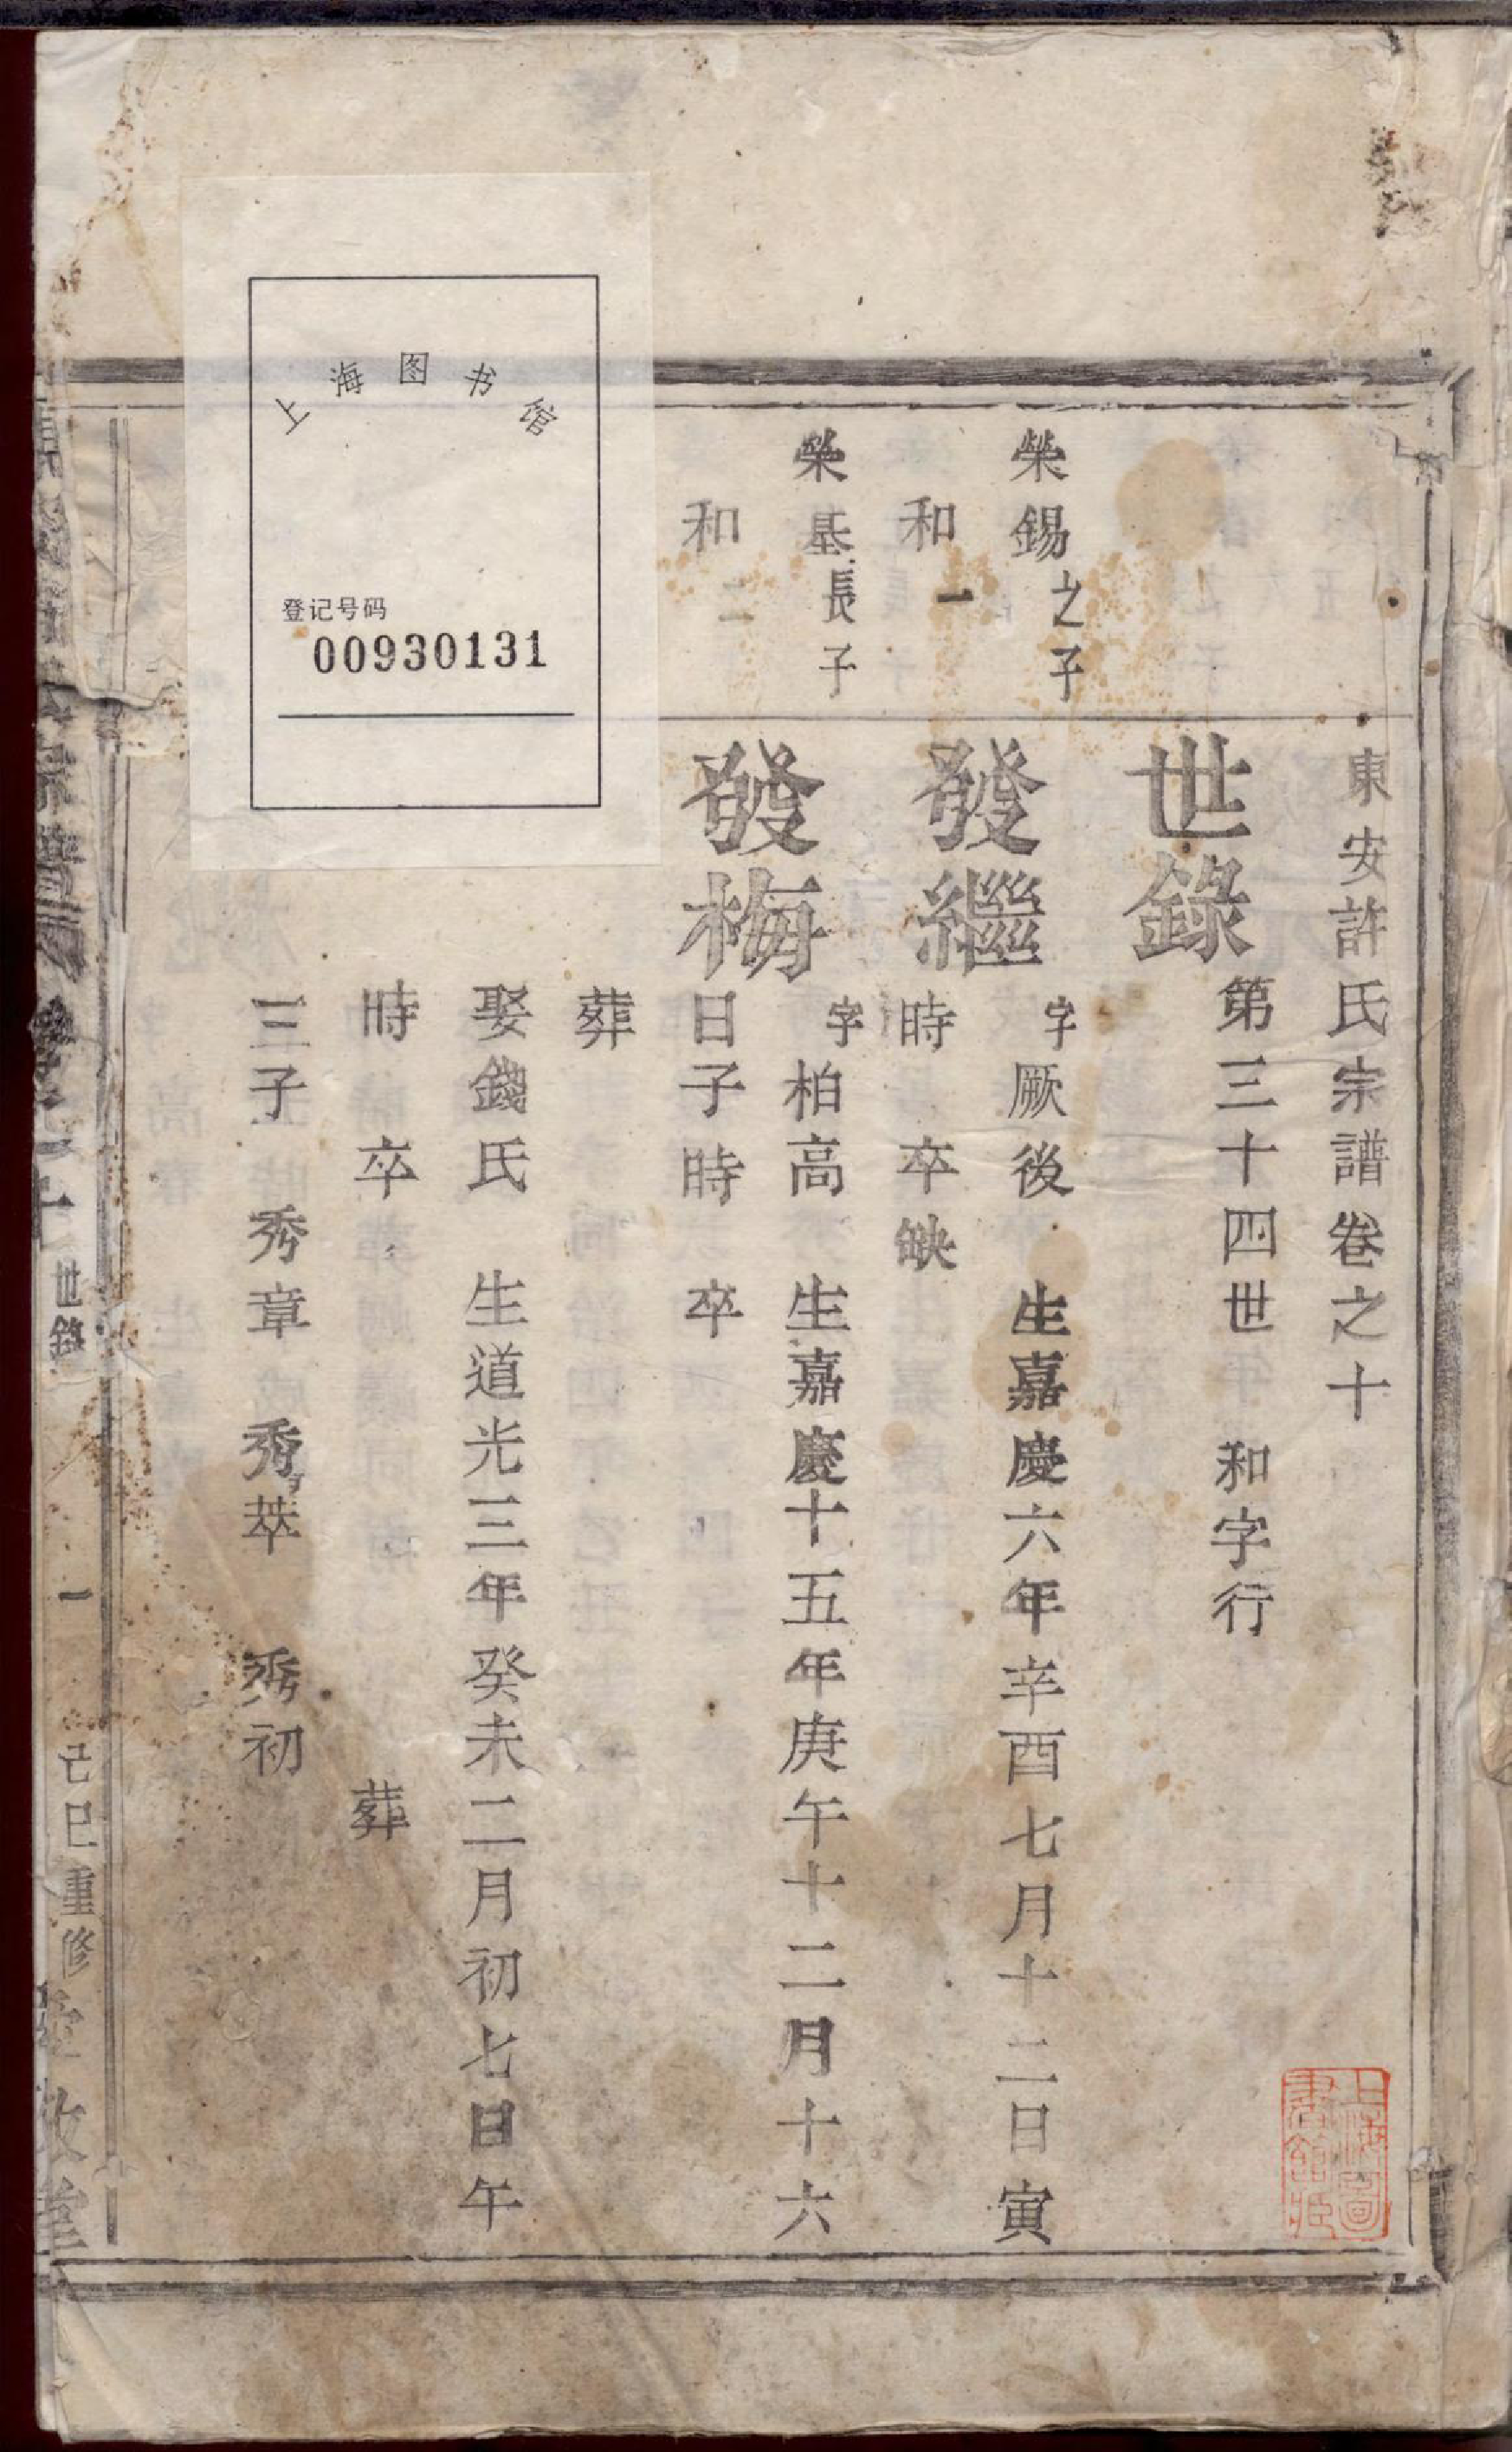 東安許氏宗譜卷之十
世錄 第三十四世 和字行
榮錫之子
和一
發繼 字厥後 生嘉慶六年辛酉七月十二日寅
時 卒缺
榮基長子
和二
發梅 字柏高 生嘉慶十五年庚午十二月十六
日子時 卒
葬
娶錢氏 生道光三年癸未二月初七日午
時 卒 葬
三子 秀章 秀萃 秀初
世錄 一 己巳重修
上海图书馆
登记号码
00930131
上海圖
書館臧